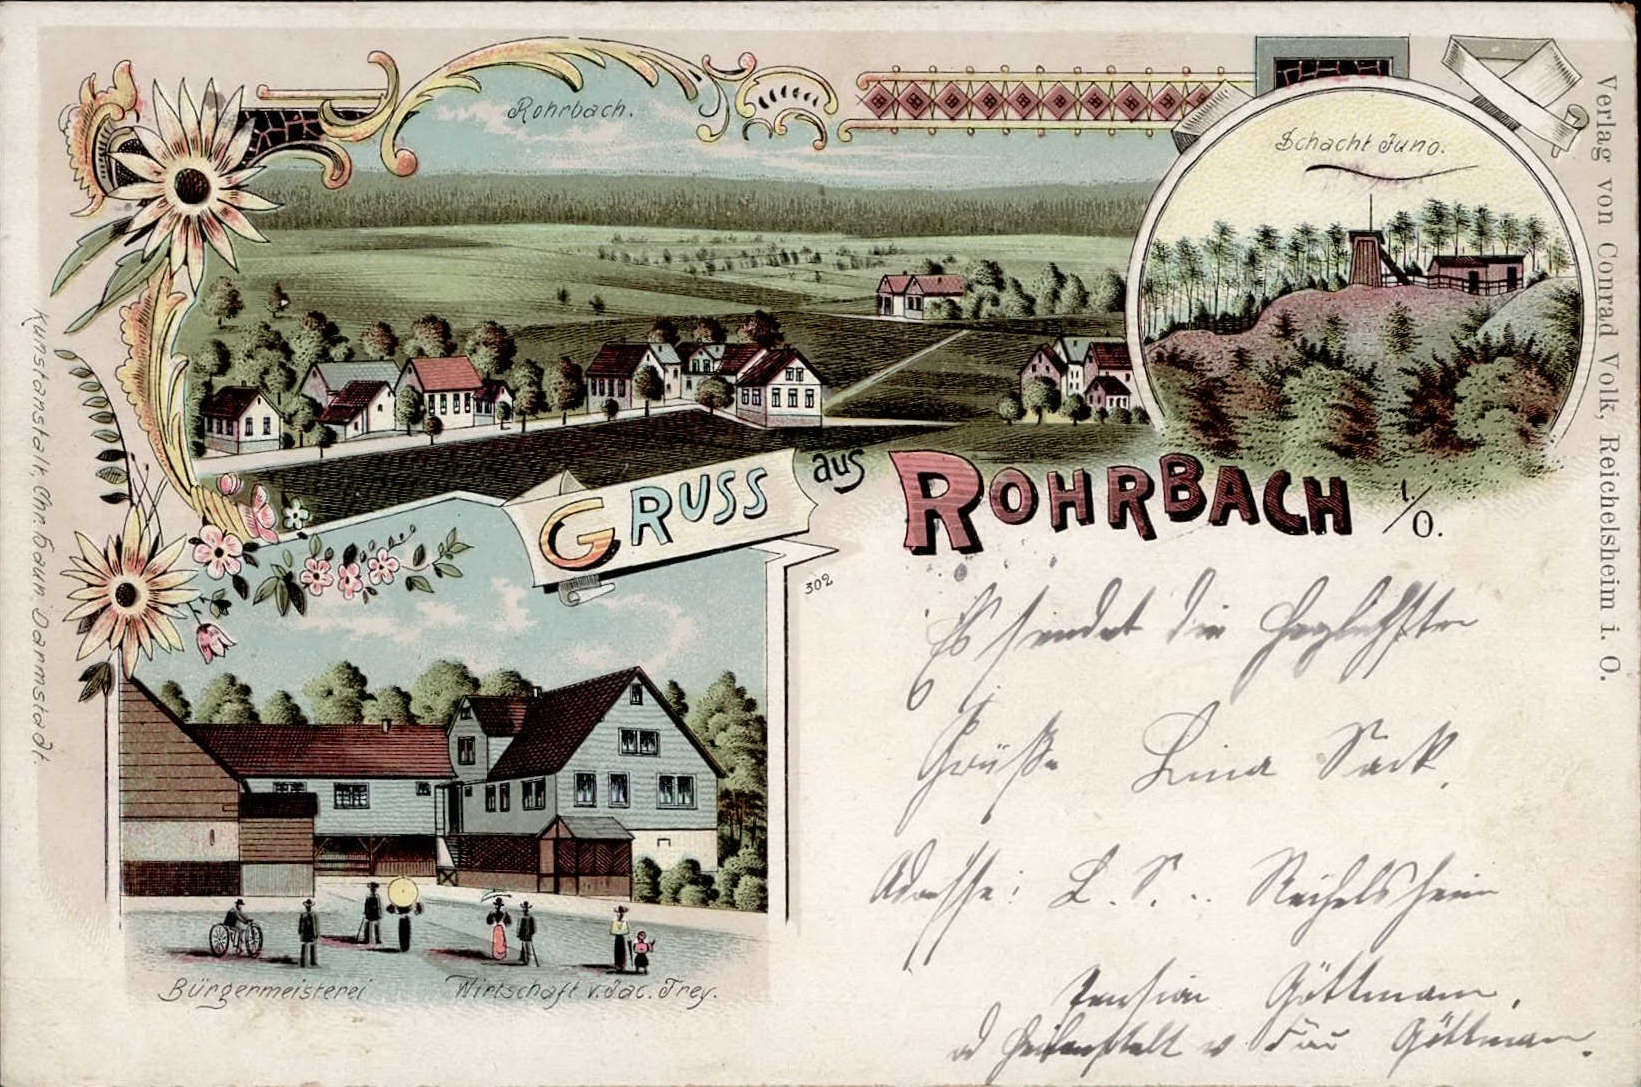 Rohrbach.
Schacht Juno.
GRUSS aus ROHRBACH i/O.
302
Es sendet die herzlichsten
Grüße Lina Sack.
Adresse: L. S. .. Reichelsheim
Pension Göttmann,
Göttmann.
Bürgermeisterei
Wirtschaft v. Jac. Trey.
Kunstanstalt Chr. Haun Darmstadt.
Verlag von Conrad Volk, Reichelsheim i. O.